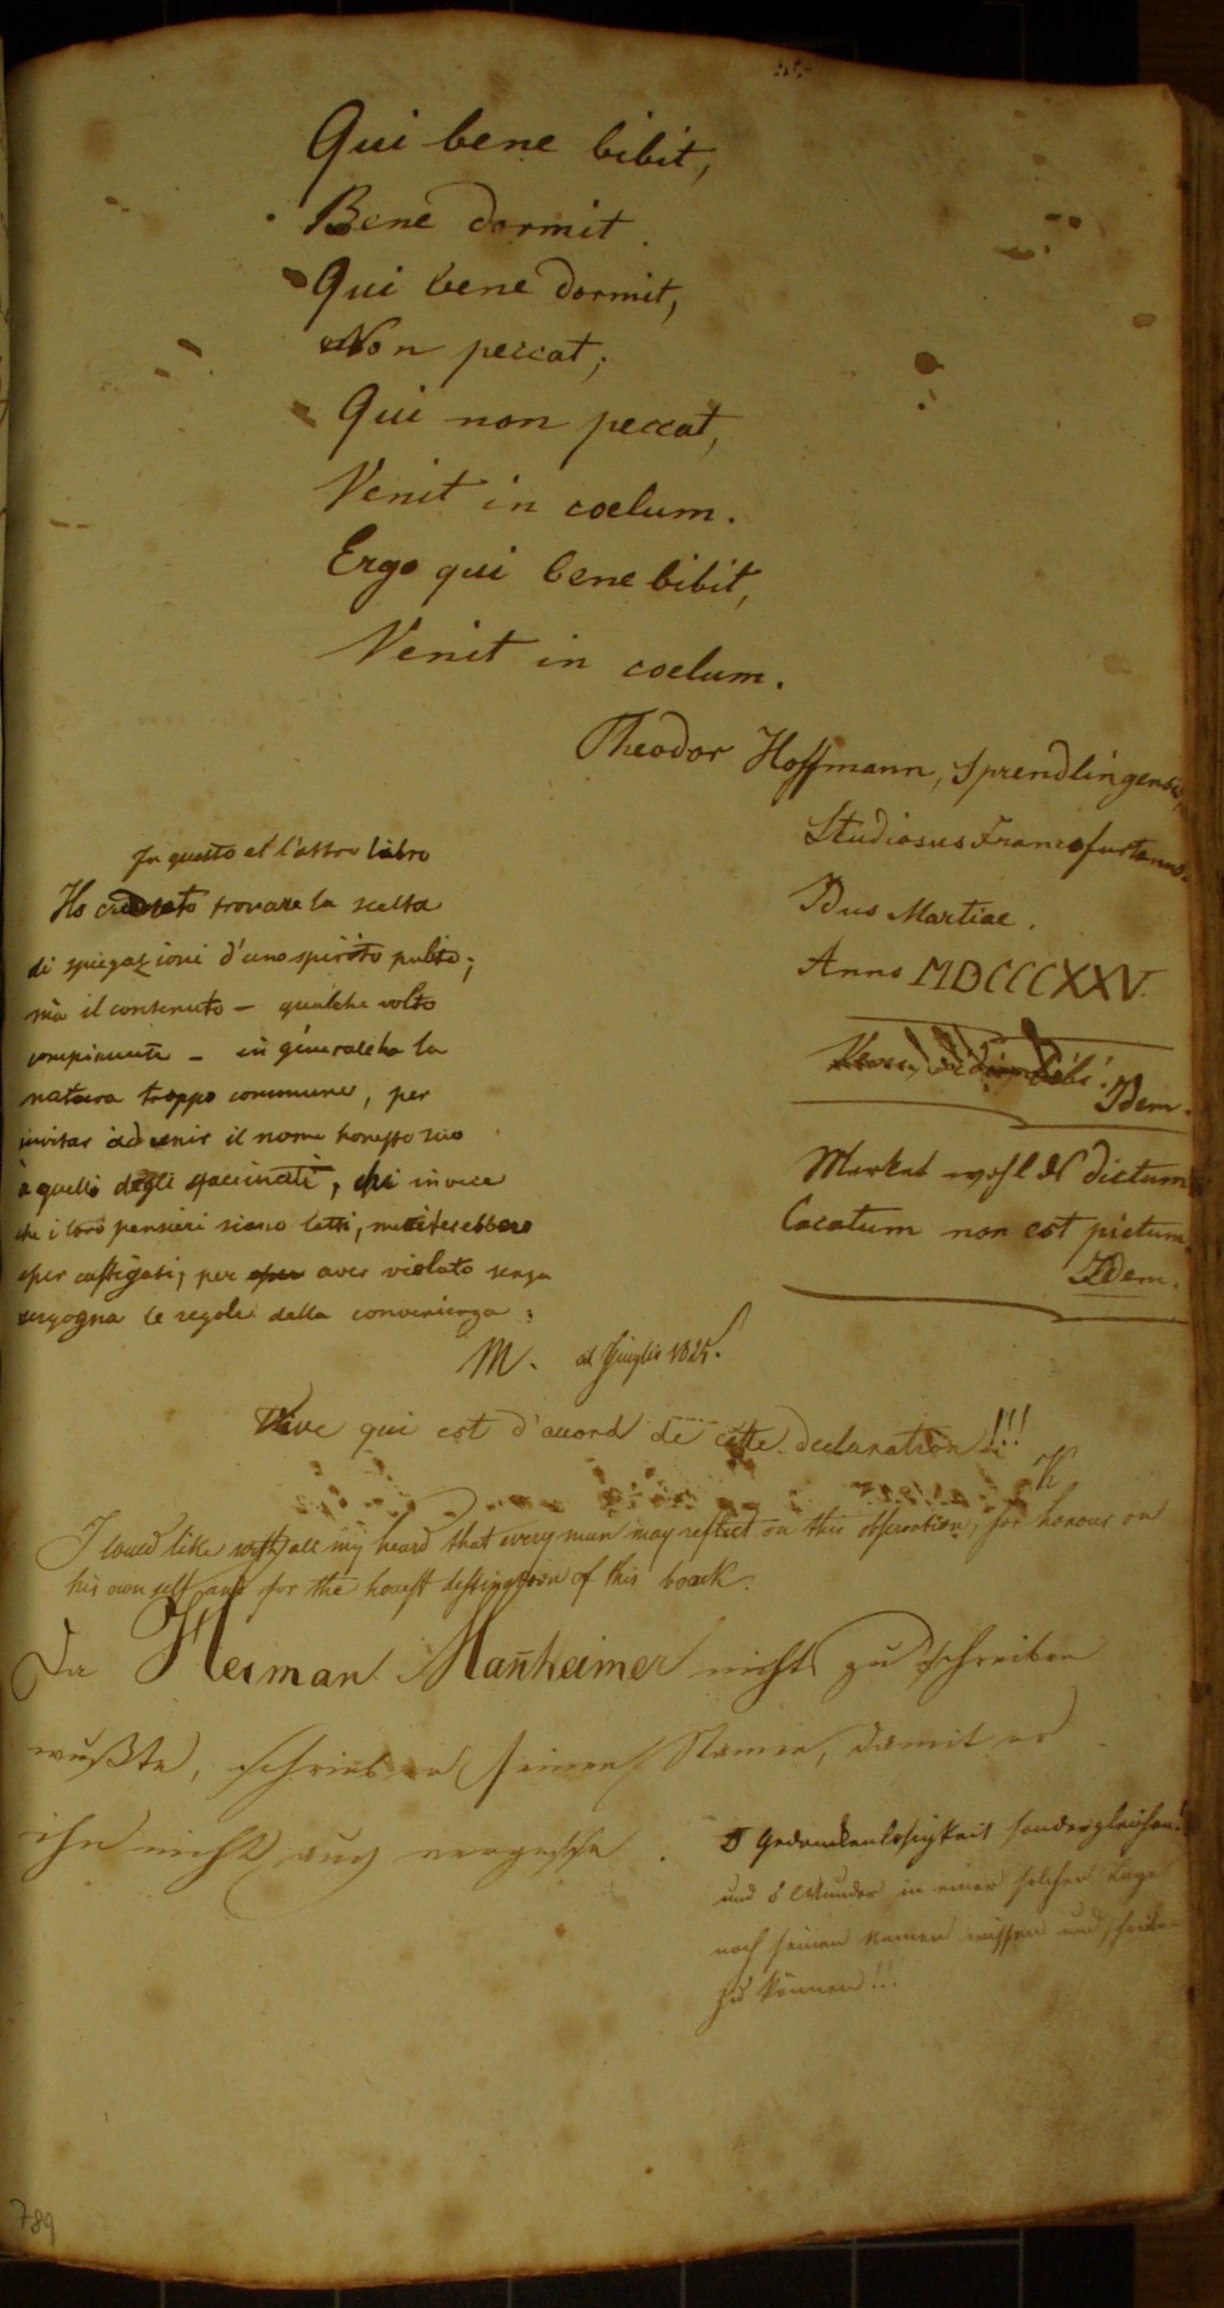 Qui bene bibit,
Bene dormit.
Qui bene dormit,
Non peccat;
Qui non peccat,
Venit in coelum.
Ergo qui bene bibit,
Venit in coelum.
Theodor Hoffmann, Sprendlingensis,
Studiosus Francofurtanus.
Idus Martiae.
Anno MDCCCXXV.
Idem.
Merket wohl das dictum
Cacatum non est pictum.
Idem.
In questo et l'altro libro
Ho creduto trovare la scelta
di spiegazioni d'uno spirito
mà il contenuto – qualche volto
– in generale ha la
natura troppo commune, per
invitar ad unir il nome honesto suo
à quelli degli, chi invece
che i loro pensieri siano letti, meriterebbero
esser castigati, per aver violato senza
vergogna le regole della convenienza:
M. al Giuglio 1825.
Vive qui est d'accord de cette declaration!!!
K
I would like with all my heard that every man may reflect on this observation, for honour on
his own self and for the honest destination of this boock.
Da Herman Man̄heimer nichts zu schreiben
wußte, schrieb er seinen Namen, damit er
ihn nicht auch vergesse.
O Gedankenlosigkeit sondergleichen!
und o Wunder in einer solchen Lage
noch seinen Namen wissen und schreiben
zu können!!!
789